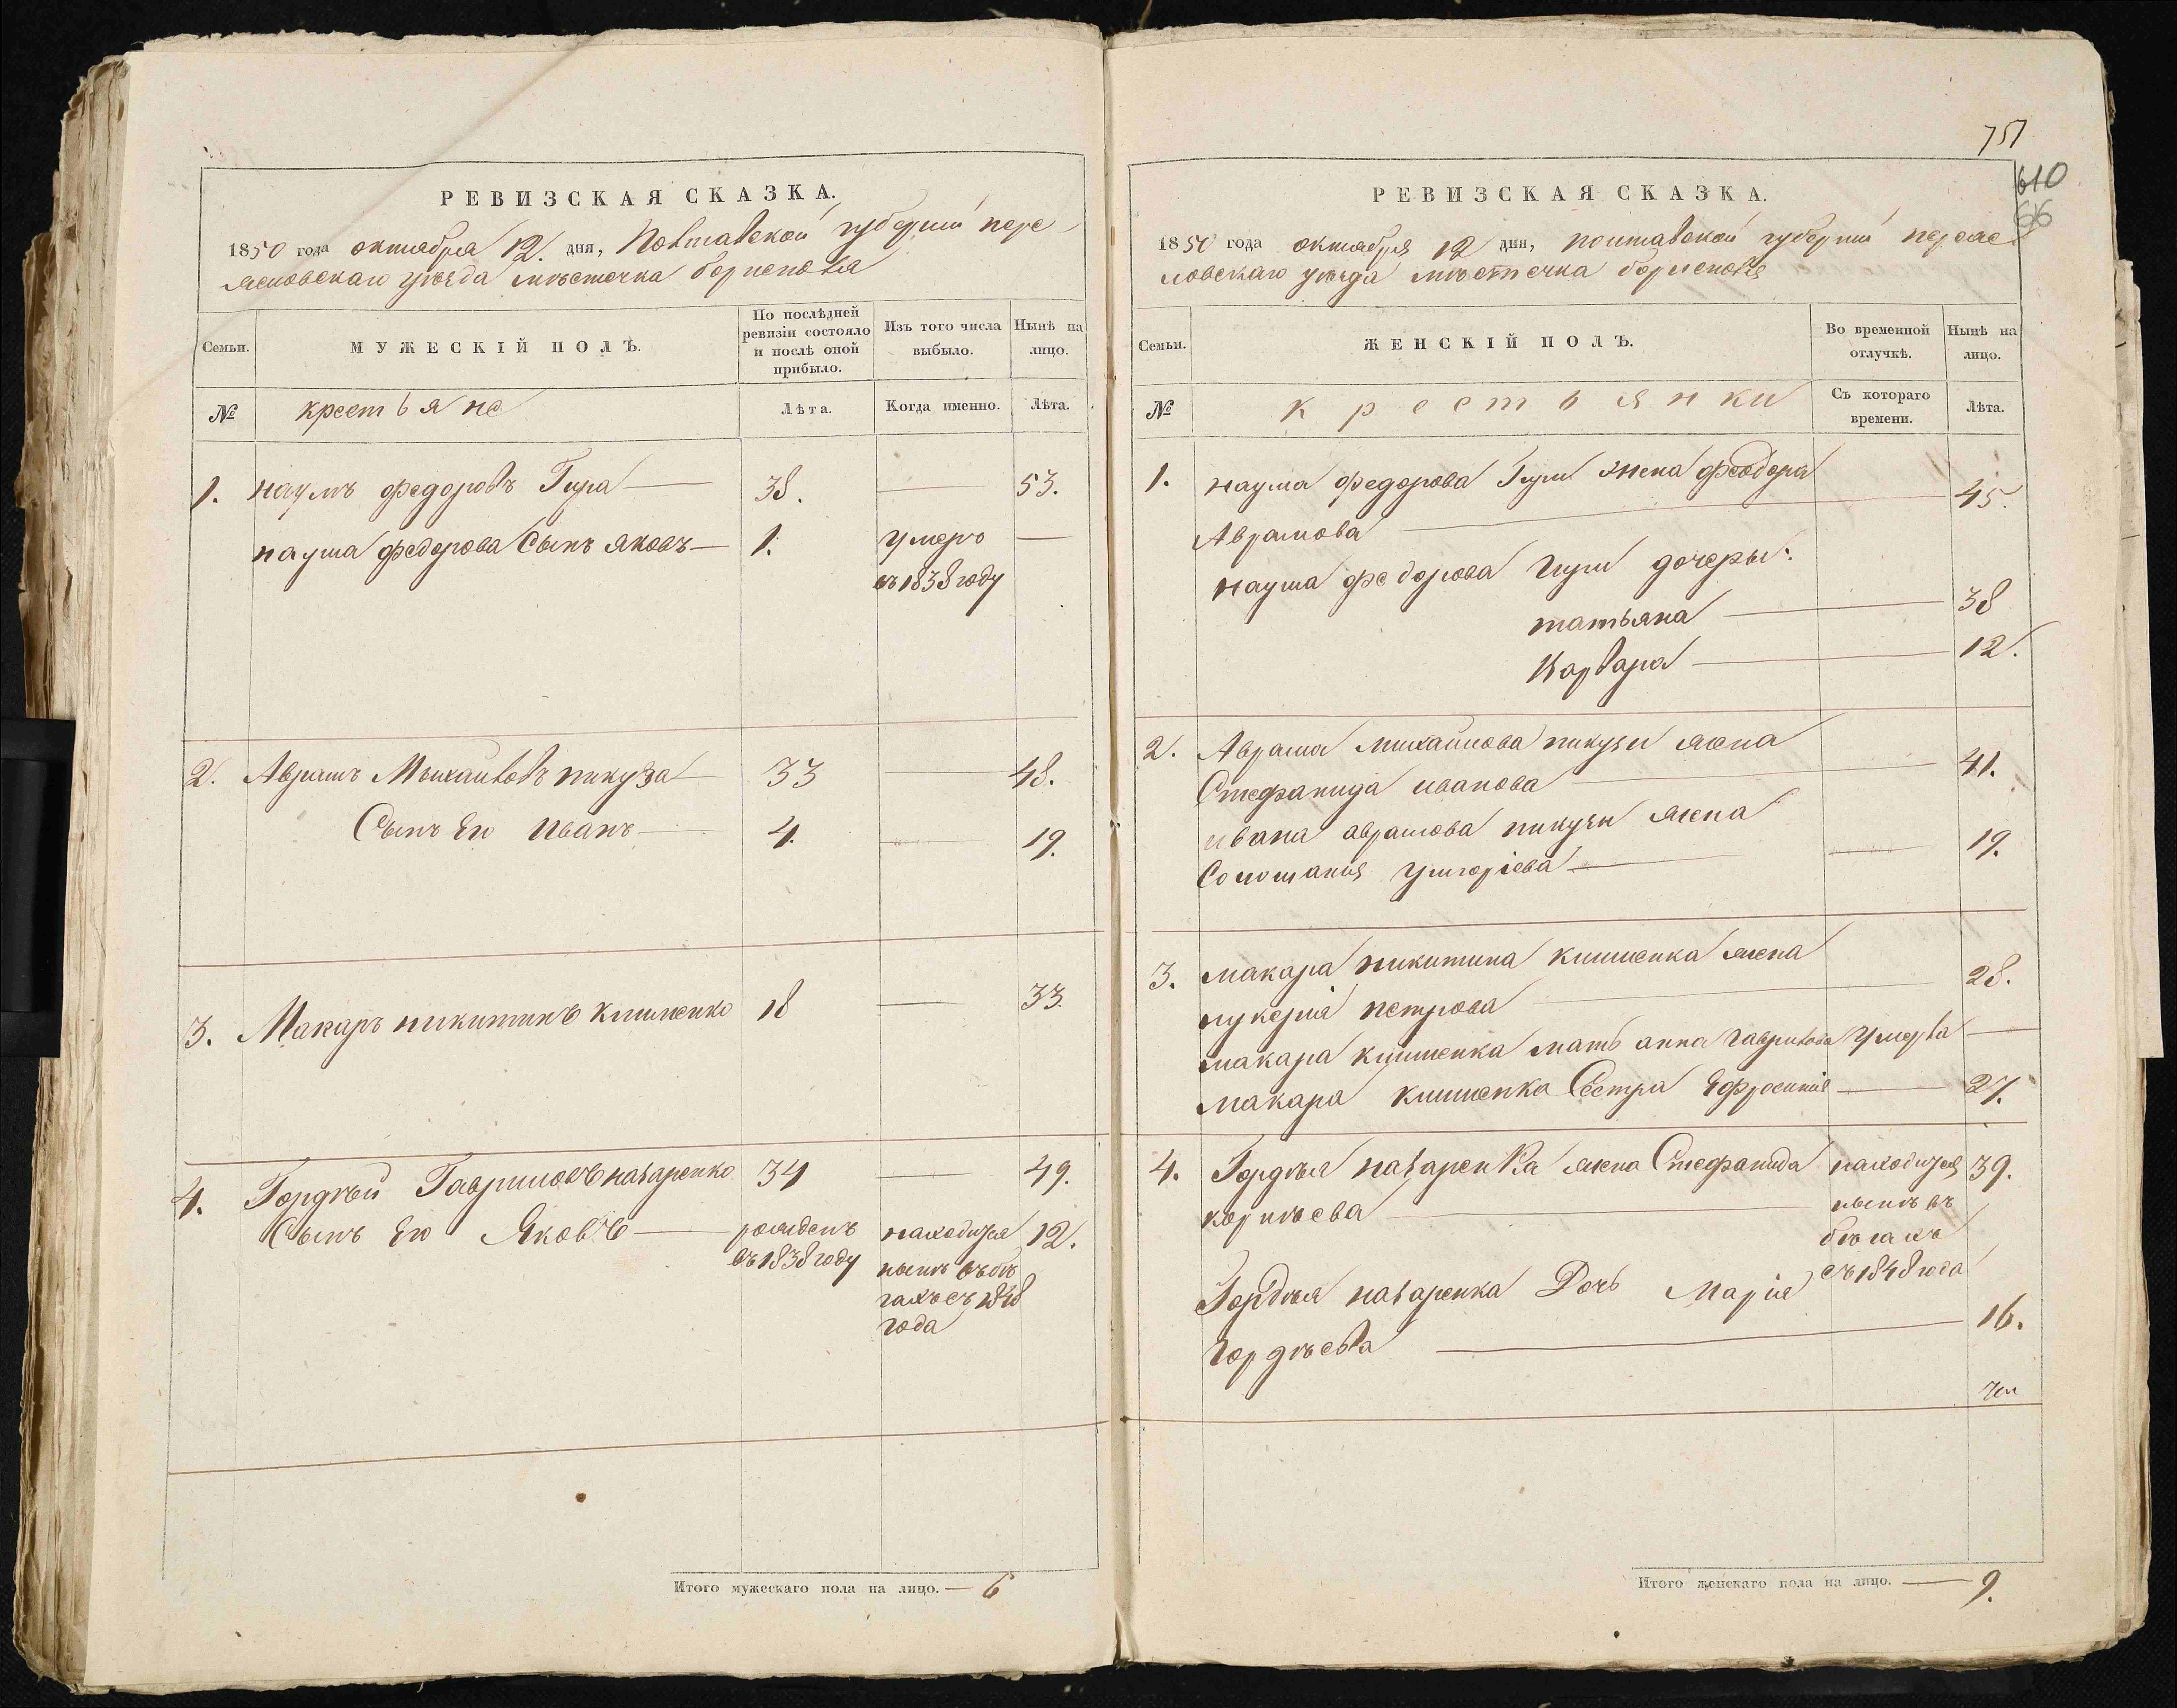 РЕВИЗСКАЯ СКАЗКА.
1850 года октября 12. дня, Полтавской губерніи пере
яславскаго уѣзда мѣстечка борисполя
Семьи. МУЖЕСКІЙ ПОЛЪ. По послѣдней ревизіи состояло и послѣ оной прибыло. Изъ того числа выбыло. Нынѣ на лицо.
№ крестьяне Лѣта. Когда именно. Лѣта.
1. наумъ федоровъ Гира 38. — 53.
наума федорова Сынъ яковъ — 1. умеръ —
въ 1838 году
2. Аврамъ Михайловъ пикуза 33 48.
Сынъ Его Иванъ — 4. — 19.
3. Макаръ никитинъ клименко 18 — 33.
4. Гордѣй Гавриловъ назаренко 34 — 49.
Сынъ Его Яковъ — рожденъ находится 12.
въ 1838 году нынѣ въ бѣ
гахъ съ 1848
года
Итого мужескаго пола на лицо. — 6
757
610
66
РЕВИЗСКАЯ СКАЗКА.
1850 года октября 12 дня, полтавской губерніи переяс
ловскаго уѣзда мѣстечка борисполя
Семьи. ЖЕНСКІЙ ПОЛЪ. Во временной отлучкѣ. Нынѣ на лицо.
№ крестьянки Съ котораго времени. Лѣта.
1. наума федорова Гиры жена феодора
Аврамова — 45.
наума федорова Гиры дочеры:
татьяна — 38
Варвара — 12.
2. Аврама михайлова пикузы жена
Стефанида иванова — 41.
ивана аврамова пикузы жена
Соломанія григоріева — — 19.
3. макара никитина клименка жена
лукерія петрова — 28.
макара клименка мать анна гаврилова умерла —
макара клименка Сестра Ефросинія — 27.
4. Гордѣя назаренка жена Стефанида находится 39.
корнѣева — нынѣ въ
бѣгахъ
съ 1848 года
Гордѣя назаренка Дочь Марія
гордѣева — 16.
Итого женскаго пола на лицо. — 9.